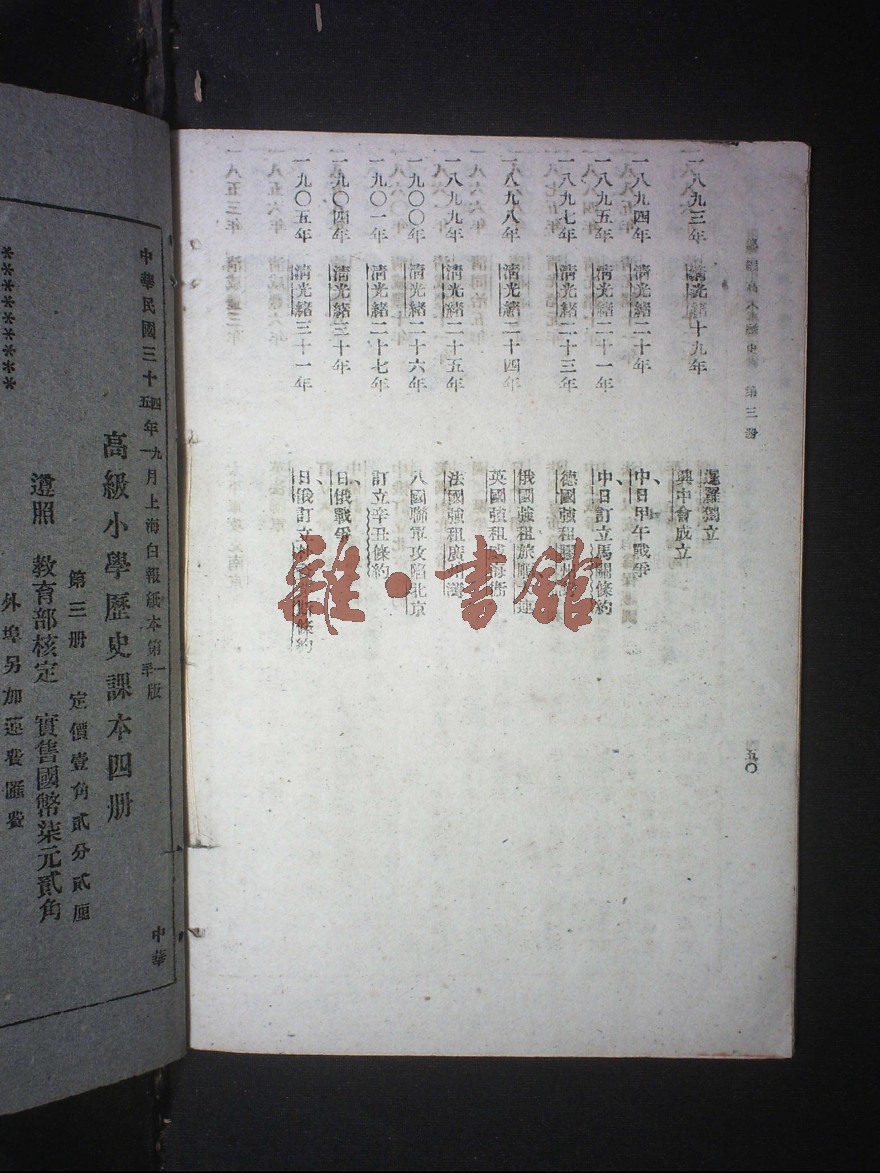 第三册
五〇
一八九三年 清光緒十九年 暹羅獨立
興中會成立
一八九四年 清光緒二十年 中、日甲午戰爭
一八九五年 清光緒二十一年 中、日訂立馬關條約
一八九七年 清光緒二十三年 德國強租膠州
一八九八年 清光緒二十四年 俄國強租旅順大連
英國強租威海衛
一八九九年 清光緒二十五年 法國強租廣州灣
一九〇〇年 清光緒二十六年 八國聯軍攻陷北京
一九〇一年 清光緒二十七年 訂立辛丑條約
一九〇四年 清光緒三十年 日、俄戰爭
一九〇五年 清光緒三十一年 日、俄訂立 條約
雜·書館
中華民國三十五四年一九月上海白報紙本第一版
高級小學歷史課本四册
第三册 定價壹角貳分貳厘
遵照 教育部核定 實售國幣柒元貳角
外埠另加運費匯費
中華
********